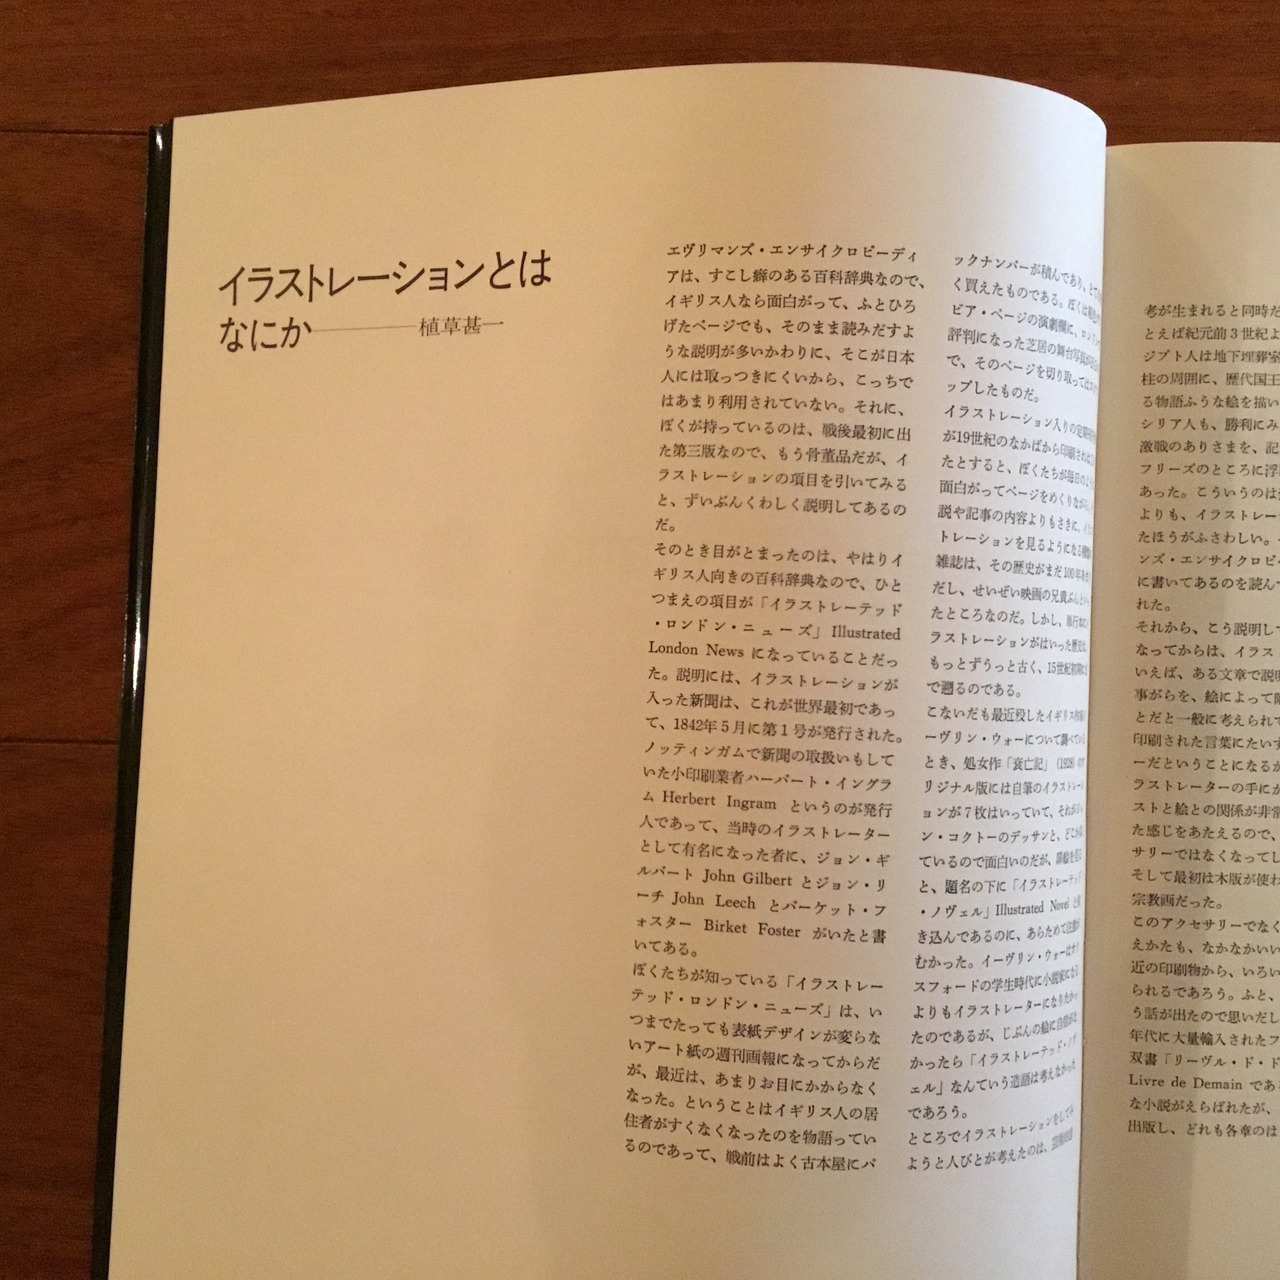 イラストレーションとは
なにか────植草甚一
エヴリマンズ・エンサイクロピーディ
アは、すこし癖のある百科辞典なので、
イギリス人なら面白がって、ふとひろ
げたページでも、そのまま読みだすよ
うな説明が多いかわりに、そこが日本
人には取っつきにくいから、こっちで
はあまり利用されていない。それに、
ぼくが持っているのは、戦後最初に出
た第三版なので、もう骨董品だが、イ
ラストレーションの項目を引いてみる
と、ずいぶんくわしく説明してあるの
だ。
そのとき目がとまったのは、やはりイ
ギリス人向きの百科辞典なので、ひと
つまえの項目が「イラストレーテッド
・ロンドン・ニューズ」Illustrated
London News になっていることだっ
た。説明には、イラストレーションが
入った新聞は、これが世界最初であっ
て、1842年5月に第1号が発行された。
ノッティンガムで新聞の取扱いもして
いた小印刷業者ハーバート・イングラ
ム Herbert Ingram というのが発行
人であって、当時のイラストレーター
として有名になった者に、ジョン・ギ
ルバート John Gilbert とジョン・リ
ーチ John Leech とバーケット・フ
ォスター Birket Foster がいたと書
いてある。
ぼくたちが知っている「イラストレー
テッド・ロンドン・ニューズ」は、い
つまでたっても表紙デザインが変らな
いアート紙の週刊画報になってからだ
が、最近は、あまりお目にかからなく
なった。ということはイギリス人の居
住者がすくなくなったのを物語ってい
るのであって、戦前はよく古本屋にバ
ックナンバーが積んであり、
く買えたものである。ぼくは
ビア・ページの演劇欄に、ロンドン
評判になった芝居の舞台写真が
で、そのページを切り取っては
ップしたものだ。
イラストレーション入りの定期
が19世紀のなかばから印刷され
たとすると、ぼくたちが毎日の
面白がってページをめくりながら、
説や記事の内容よりもさきに、イラス
トレーションを見るようになる
雑誌は、その歴史がまだ100年
だし、せいぜい映画の兄貴ぶん
たところなのだ。しかし、単行本に
ラストレーションがはいった歴史は、
もっとずうっと古く、15世紀初期
で遡るのである。
こないだも最近歿したイギリス
ーヴリン・ウォーについて調べている
とき、処女作「衰亡記」(1928) のオ
リジナル版には自筆のイラストレーシ
ョンが7枚はいっていて、それがジャ
ン・コクトーのデッサンと、どこか
ているので面白いのだが、扉絵を見る
と、題名の下に「イラストレーテッド
・ノヴェル」Illustrated Novel と
き込んであるのに、あらためて注意が
むかった。イーヴリン・ウォーはオク
スフォードの学生時代に小説家になる
よりもイラストレーターになりたかっ
たのであるが、じぶんの絵に自信がな
かったら「イラストレーテッド・ノヴ
ェル」なんていう造語は考えなかった
であろう。
ところでイラストレーションをしてみ
ようと人びとが考えたのは、
考が生まれると同時だ
とえば紀元前3世紀よ
ジプト人は地下埋葬室
柱の周囲に、歴代国王
る物語ふうな絵を描い
シリア人も、勝利にみ
激戦のありさまを、記
フリーズのところに浮
あった。こういうのは
よりも、イラストレー
たほうがふさわしい。
ンズ・エンサイクロピ
に書いてあるのを読んで
れた。
それから、こう説明して
なってからは、イラス
いえば、ある文章で説明
事がらを、絵によって
とだと一般に考えられて
印刷された言葉にたいす
ーだということになるが
ラストレーターの手にか
ストと絵との関係が非常
た感じをあたえるので、
サリーではなくなってし
そして最初は木版が使わ
宗教画だった。
このアクセサリーでなく
えかたも、なかなかいい
近の印刷物から、いろい
られるであろう。ふと、
う話が出たので思いだし
年代に大量輸入されたフ
双書「リーヴル・ド・ド
Livre de Demain であ
な小説がえらばれたが、
出版し、どれも各章のは